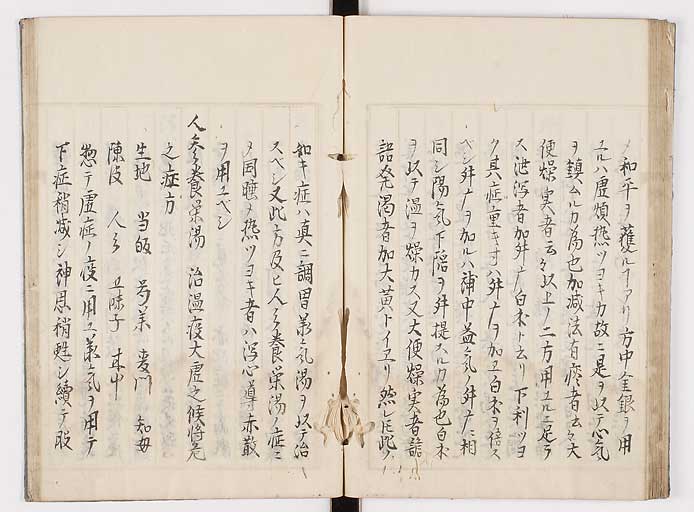 ノ和平ヲ獲ルヿアリ方中金銀ヲ用
ユルハ虚煩熱ツヨキカ故ニ是ヲ以テ心気
ヲ鎮ムルカ為也加減法有痰者云々大
便燥実者云々以上ノ二方用ユルニ足ラ
ス泄瀉者加升广白朮ト云リ下利ツヨ
ク其症重キ寸ハ升广ヲ加ヱ白朮ヲ倍ス
ベシ升广ヲ加ルハ補中益気ノ升广ニ相
同シ陽気下陥ヲ升提スルカ為也白朮
ヲ以テ温ヲ燥カス又大便燥実者
発渇者加大黄トイヱリ然レ𪜈此ノ
如キ症ハ真ニ調胃承気湯ヲ以テ治
スベシ又此方及ヒ人参養栄湯ノ症ニ
メ同睡ノ熱ツヨキ者ハ瀉心導赤散
ヲ用ユベシ
人参養栄湯 治温疫大虚之候将危
之症方
生地 当皈 芍薬 麦門 知母
陳皮 人参 五味子 朮 甘
惣テ虚症ノ疫ニ用ユ承気ヲ用テ
下症稍減シ神思稍甦シ續テ肢